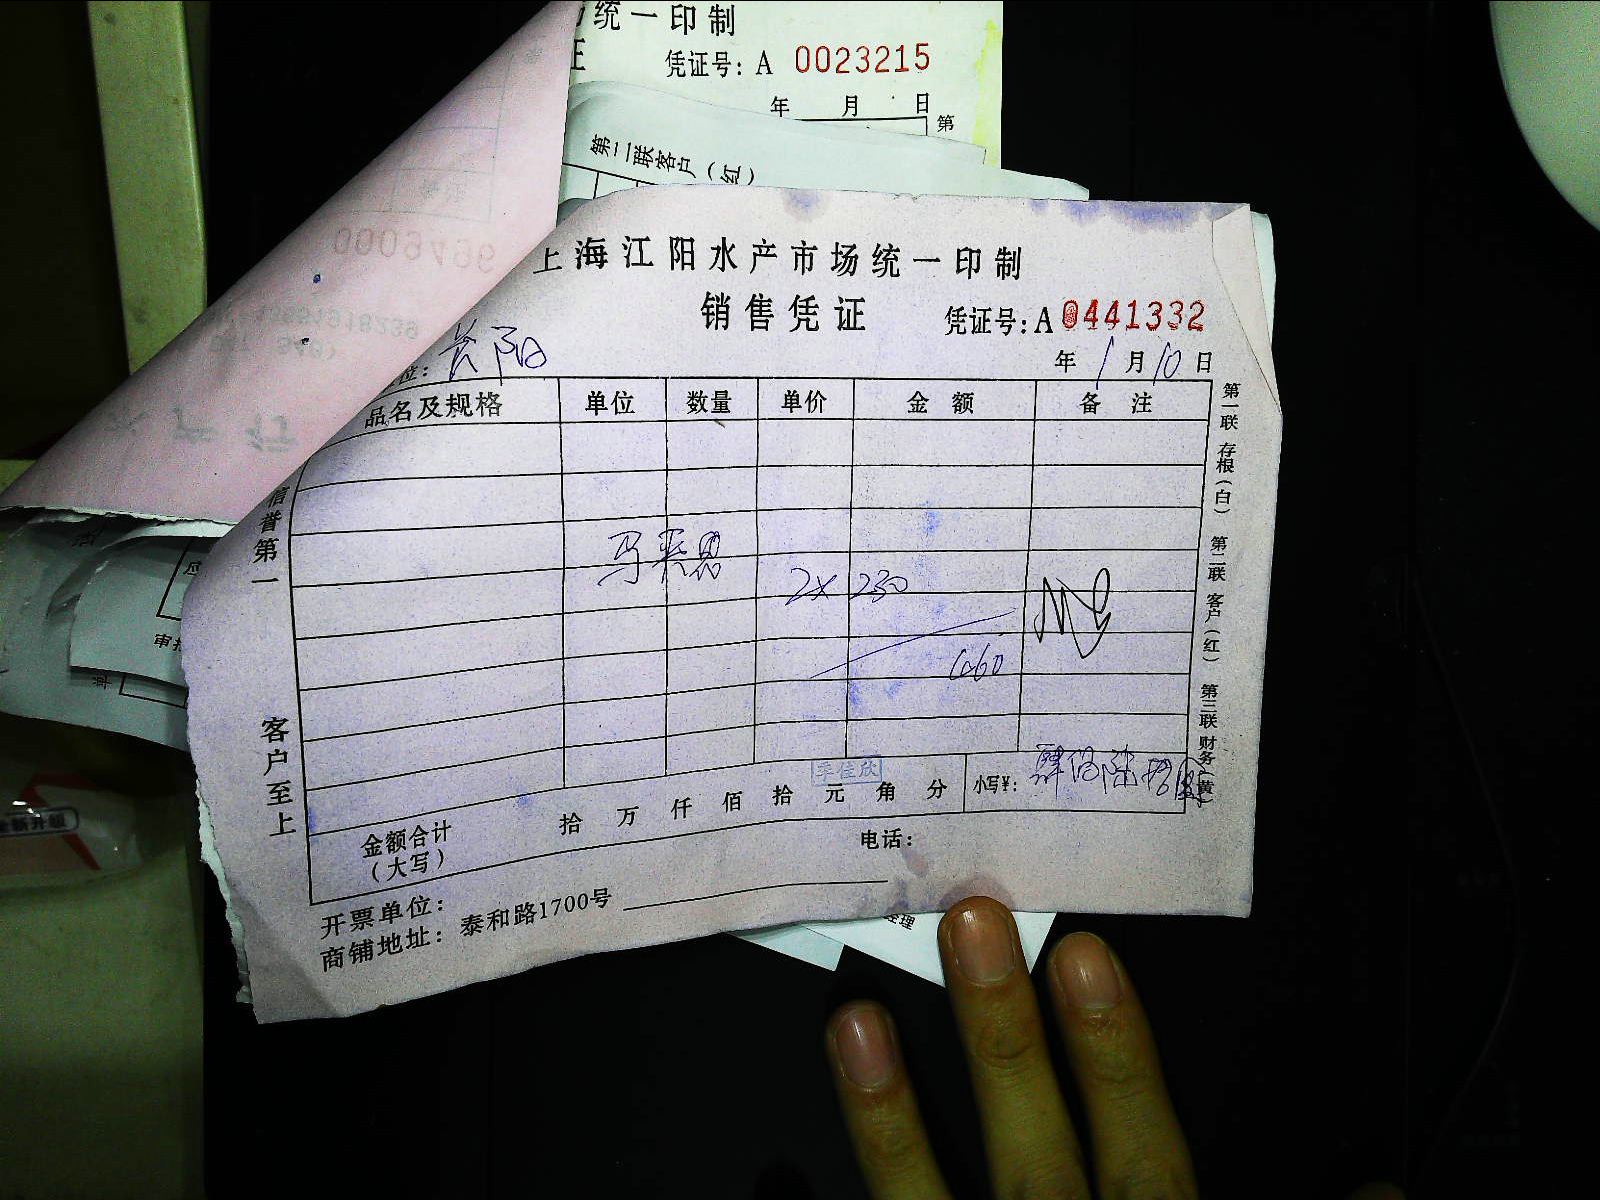 统一印制
凭证号：A 0023215
年 月 日
第
第二联客户（红）
上海江阳水产市场统一印制
销售凭证
凭证号：A 0441332
年 1 月 10 日
位：
品名及规格 单位 数量 单价 金额 备注
2× 230
460
李佳欣
金额合计（大写） 拾 万 仟 佰 拾 元 角 分 小写¥： 肆佰陆拾
电话：
开票单位：
商铺地址：泰和路1700号
信誉第一
客户至上
第一联 存根（白） 第二联 客户（红） 第三联 财务（黄）
经理